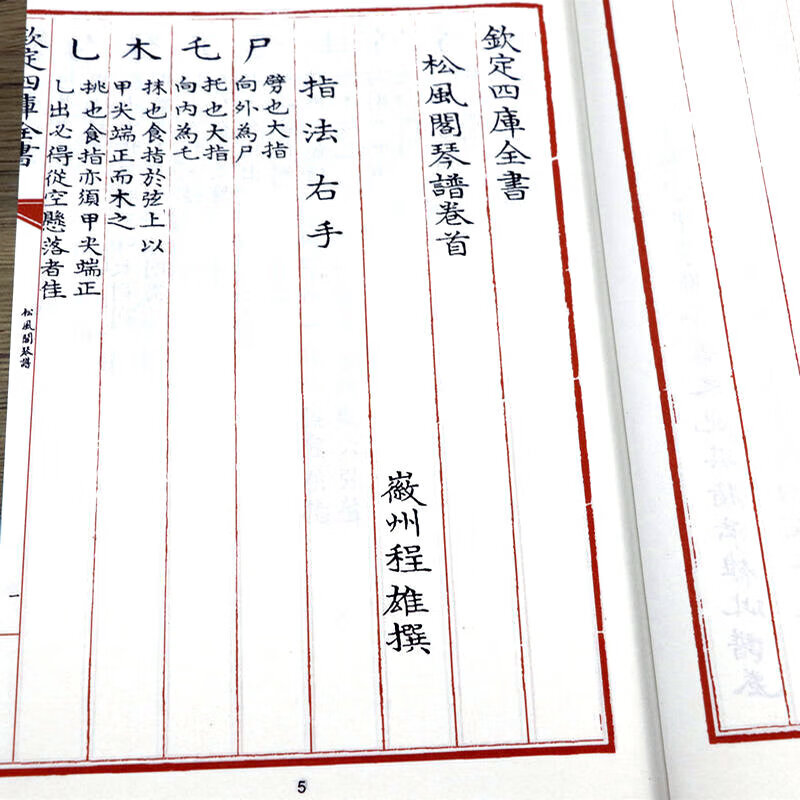 欽定四庫全書
松風閣琴譜卷首
徽州程雄撰
指法右手
尸
劈也大指
向外為尸
乇
托也大指
向內為乇
木
抹也食指於弦上以
甲尖端正而木之
乚
挑也食指亦須甲尖端正
乚出必得從空懸落者佳
欽定四庫全書
松風閣琴譜
一
5